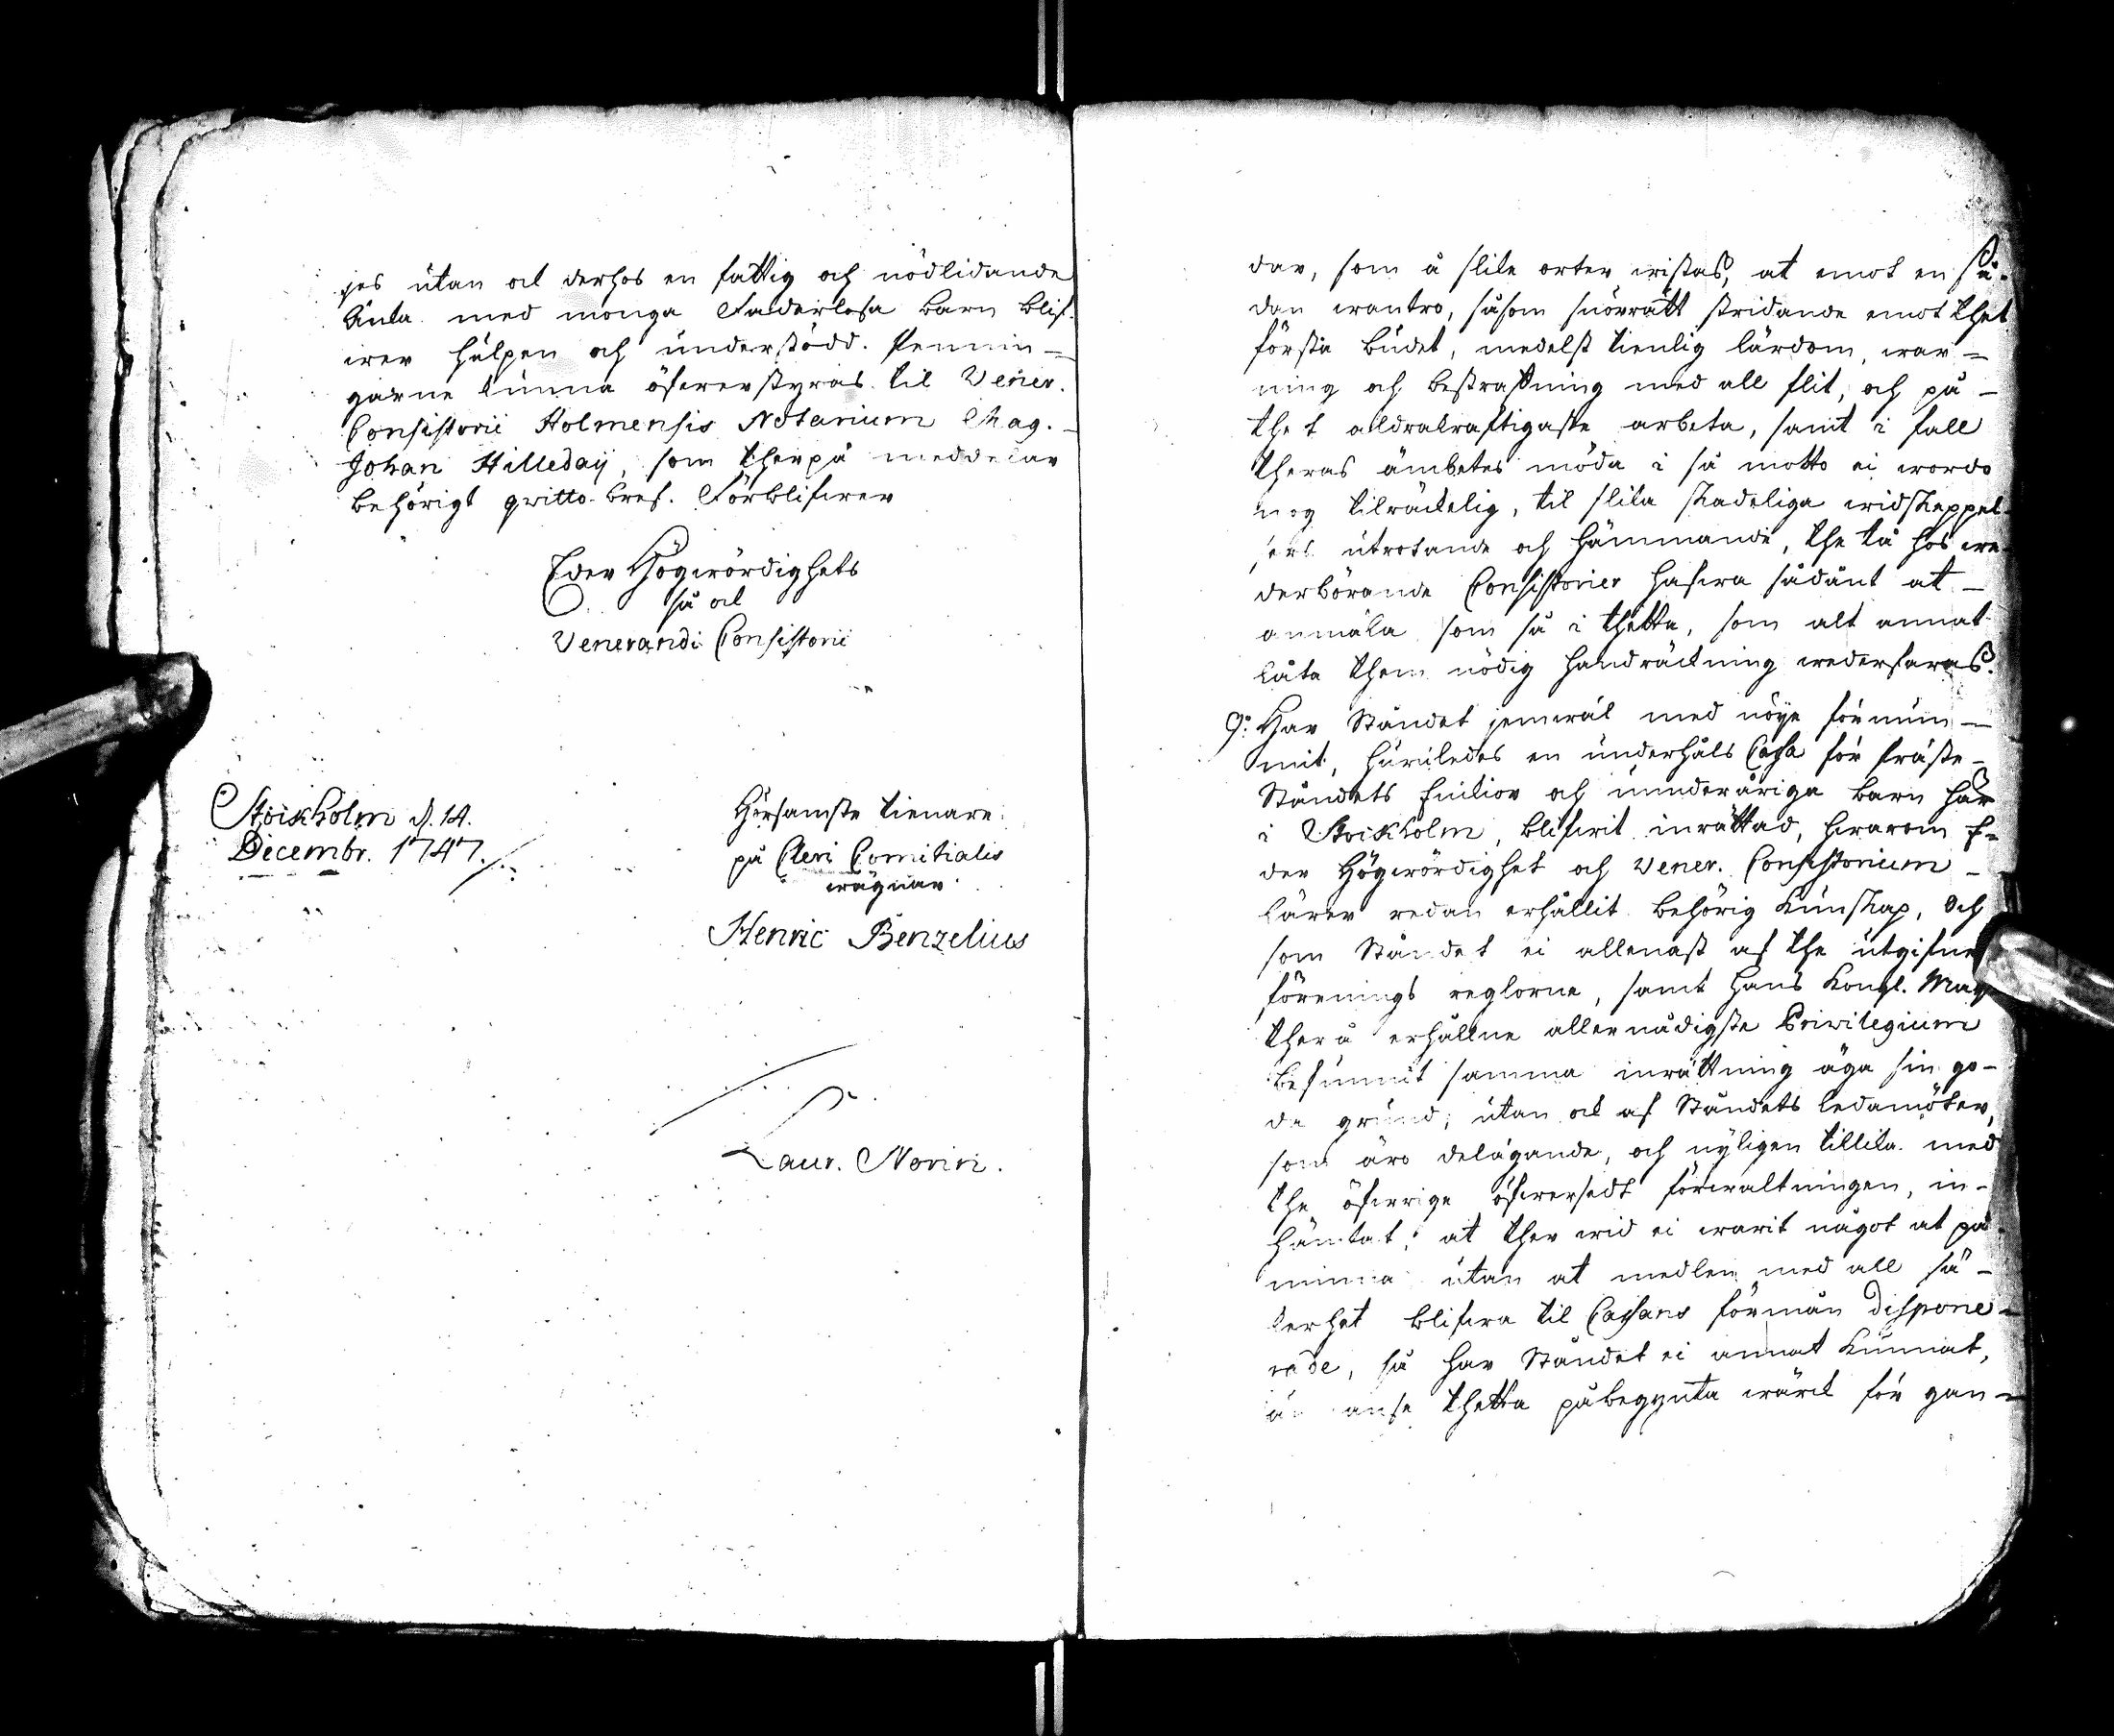 jes utan ock derhos en fattig och nödlidande
Änka med monga Faderlösa barn blif-
wer hulpen och understödd. Pennin-
garne kunna öfwerstyras til Vener.
Consistorii Holmensis Notarium Mag.
Johan Hilleday, som therpå meddelar
behörigt qvitto-bref. Förblifwer
Eder Högwördighets
så ock
Venerandi Consistorii
Stockholm d. 14.
Decembr. 1747.
Hörsamste tienare
på Cleri Comitialis
wägnar
Henric Benzelius
Laur. Norin.
dar, som å slike orter wistas, at emot en så-
dan wantro, såsom snörrätt stridande emot thet
första budet, medelst tienlig lärdom, war-
ning och bestraffning med all flit, och på
thet aldrakraftigaste arbeta, samt i fall
theras ämbetes möda i så motto ei wordo
nog tilräckelig, til slika skadeliga widskeppel-
sers utrotande och hämmande, the tå hos we-
derbörande Consistorier hafwa sådant at
anmäla som så i thetta, som alt annat
låta them nödig handräckning wederfaras.
9:o Har Ståndet jemwäl med nöye förnum-
mit, huruledes en underhåls Cassa för Präste-
Ståndets Enkior och minderåriga barn här
i Stockholm, blifwit inrättad, hwarom E-
der Högwördighet och Vener. Consistorium
lärer redan erhållit behörig kunskap, Och
som Ståndet ei allenast af the utgifne
förenings reglorne, samt Hans Kongl. May:
therå erhållne allernådigste Privilegium
befunnit samma inrättning äga sin go-
da grund; utan ock af Ståndets ledamöter,
som äro delägande, och nyligen tillika med
the öfwrige öfwersedt förwaltningen, in-
hämtat, at ther wid ei warit något at på-
minna utan at medlen med all sä-
kerhet blifwa til Cassans förmån dispone-
rade, så har Ståndet ei annat kunnat,
än anse thetta påbegynta wärck för gan-